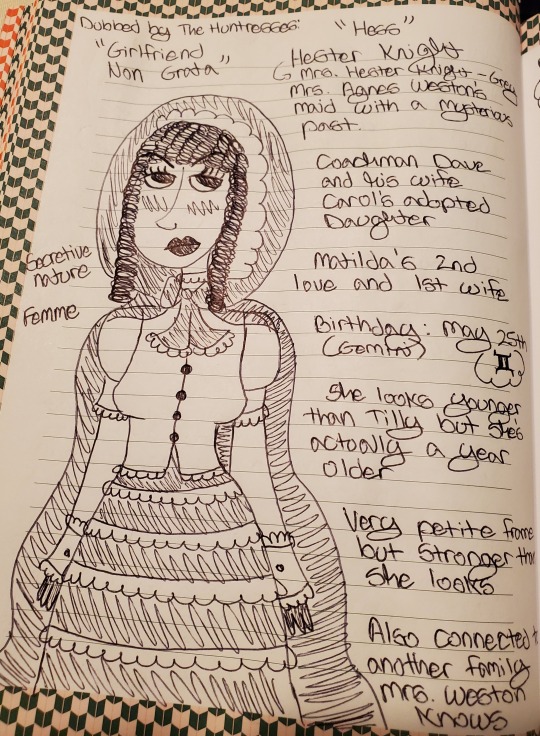 Dubbed by The Huntresses:
"Girlfriend
Non Grata"
"Hess"
Hester Knight
Mrs. Hester Knight-Grey
Mrs. Agnes Weston's
maid with a mysterious
past.
Coachman Dave
and his wife
Carol's adopted
Daughter
Matilda's 2nd
love and 1st wife
Secretive
nature
Femme
Birthday: May 25th
(Gemini)
♊
She looks younger
than Tilly but she's
actually a year
older
Very petite frame
but stronger than
She looks
Also connected
another family
Mrs. Weston
Knows